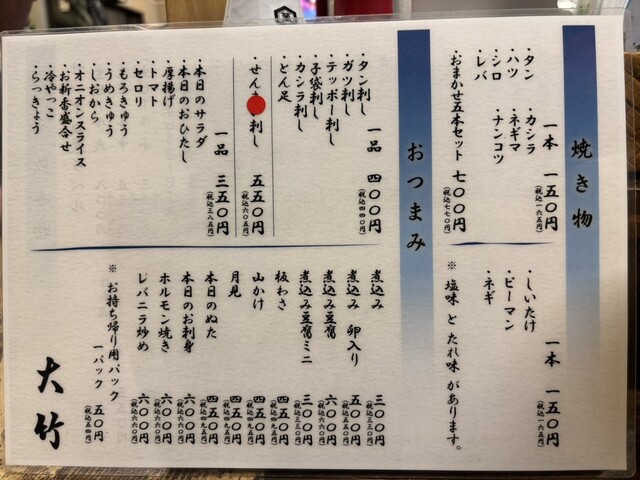 焼き物
一本 一五〇円
(税込一六五円)
・タン ・カシラ
・ハツ ・ネギマ
・シロ ・ナンコツ
・レバ
・おまかせ五本セット 七〇〇円
(税込七七〇円)
一本 一五〇円
(税込一六五円)
・しいたけ
・ピーマン
・ネギ
※ 塩味とたれ味があります。
おつまみ
一品 四〇〇円
(税込四四〇円)
・タン刺し
・ガツ刺し
・テッポー刺し
・子袋刺し
・カシラ刺し
・とん足
・せん 刺し 五五〇円
(税込六〇五円)
一品 三五〇円
(税込三八五円)
・本日のサラダ
・本日のおひたし
・厚揚げ
・トマト
・セロリ
・もろきゅう
・うめきゅう
・しおから
・オニオンスライス
・お新香盛合せ
・冷やっこ
・らっきょう
煮込み 三〇〇円
(税込三三〇円)
煮込み 卵入り 五〇〇円
(税込五五〇円)
煮込み豆腐 六〇〇円
(税込六六〇円)
煮込み豆腐ミニ 三〇〇円
(税込三三〇円)
板わさ 四五〇円
(税込四九五円)
山かけ 四五〇円
(税込四九五円)
月見 四五〇円
(税込四九五円)
本日のぬた 四五〇円
(税込四九五円)
本日のお刺身 六〇〇円
(税込六六〇円)
ホルモン焼き 六〇〇円
(税込六六〇円)
レバニラ炒め 六〇〇円
(税込六六〇円)
※ お持ち帰り用パック
一パック 五〇円
(税込五四円)
大竹